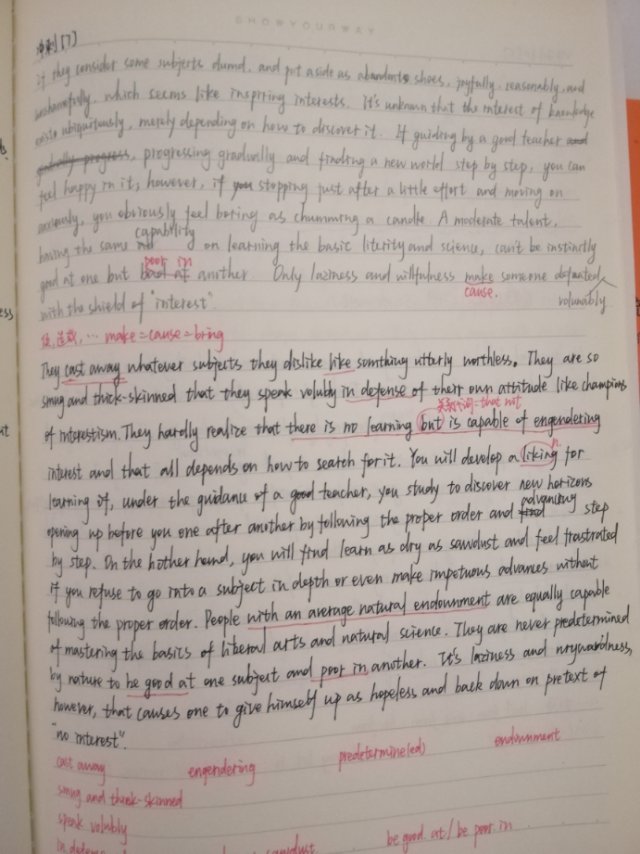 SHOWYOURWAY
冲刺[7]
if they consider some subjects dumd, and put aside as abandonts shoes, joyfully, reasonably, and
unshamefully, which seems like inspiring interests. It's unknown that the interest of knowledge
exists ubiquitously, merely depending on how to discover it. If guiding by a good teacher and
gradually progress, progressing gradually and finding a new world step by step, you can
feel happy in it; however, if you stopping just after a little effort and moving on
anxiously, you obviously feel boring as chumming a candle. A moderate talent,
capability
having the same on learning the basic literity and science, can't be instinctly
poor in
good at one but bad at another. Only laziness and willfulness make someone defeated
cause.
volunably
with the shield of "interest".
make = cause = bring
They cast away whatever subjects they dislike like somthing utterly worthless. They are so
smug and thick-skinned that they speak volubly in defense of their own attitude like champions
关系代词=that not
of interestism. They hardly realize that there is no learning but is capable of engendering
interest and that all depends on how to search for it. You will develop a liking for
n
learning if, under the guidance of a good teacher, you study to discover new horizons
advancing
opening up before you one after another by following the proper order and find step
by step. On the hother hound, you will find learn as dry as sawdust and feel frastrated
if you refuse to go into a subject in depth or even make impetuous advances without
following the proper order. People with an average natural endounment are equally capable
of mastering the basics of liberal arts and natural science. They are never predetermined
by nature to be good at one subject and poor in another. It's laziness and nrywardness,
however, that causes one to give himself up as hopeless and back down on pretext of
"no interest".
cast away engendering predetermine(ed) endounment
smug and think-skinned
speak volubly
in defense sawdust be good at / be poor in